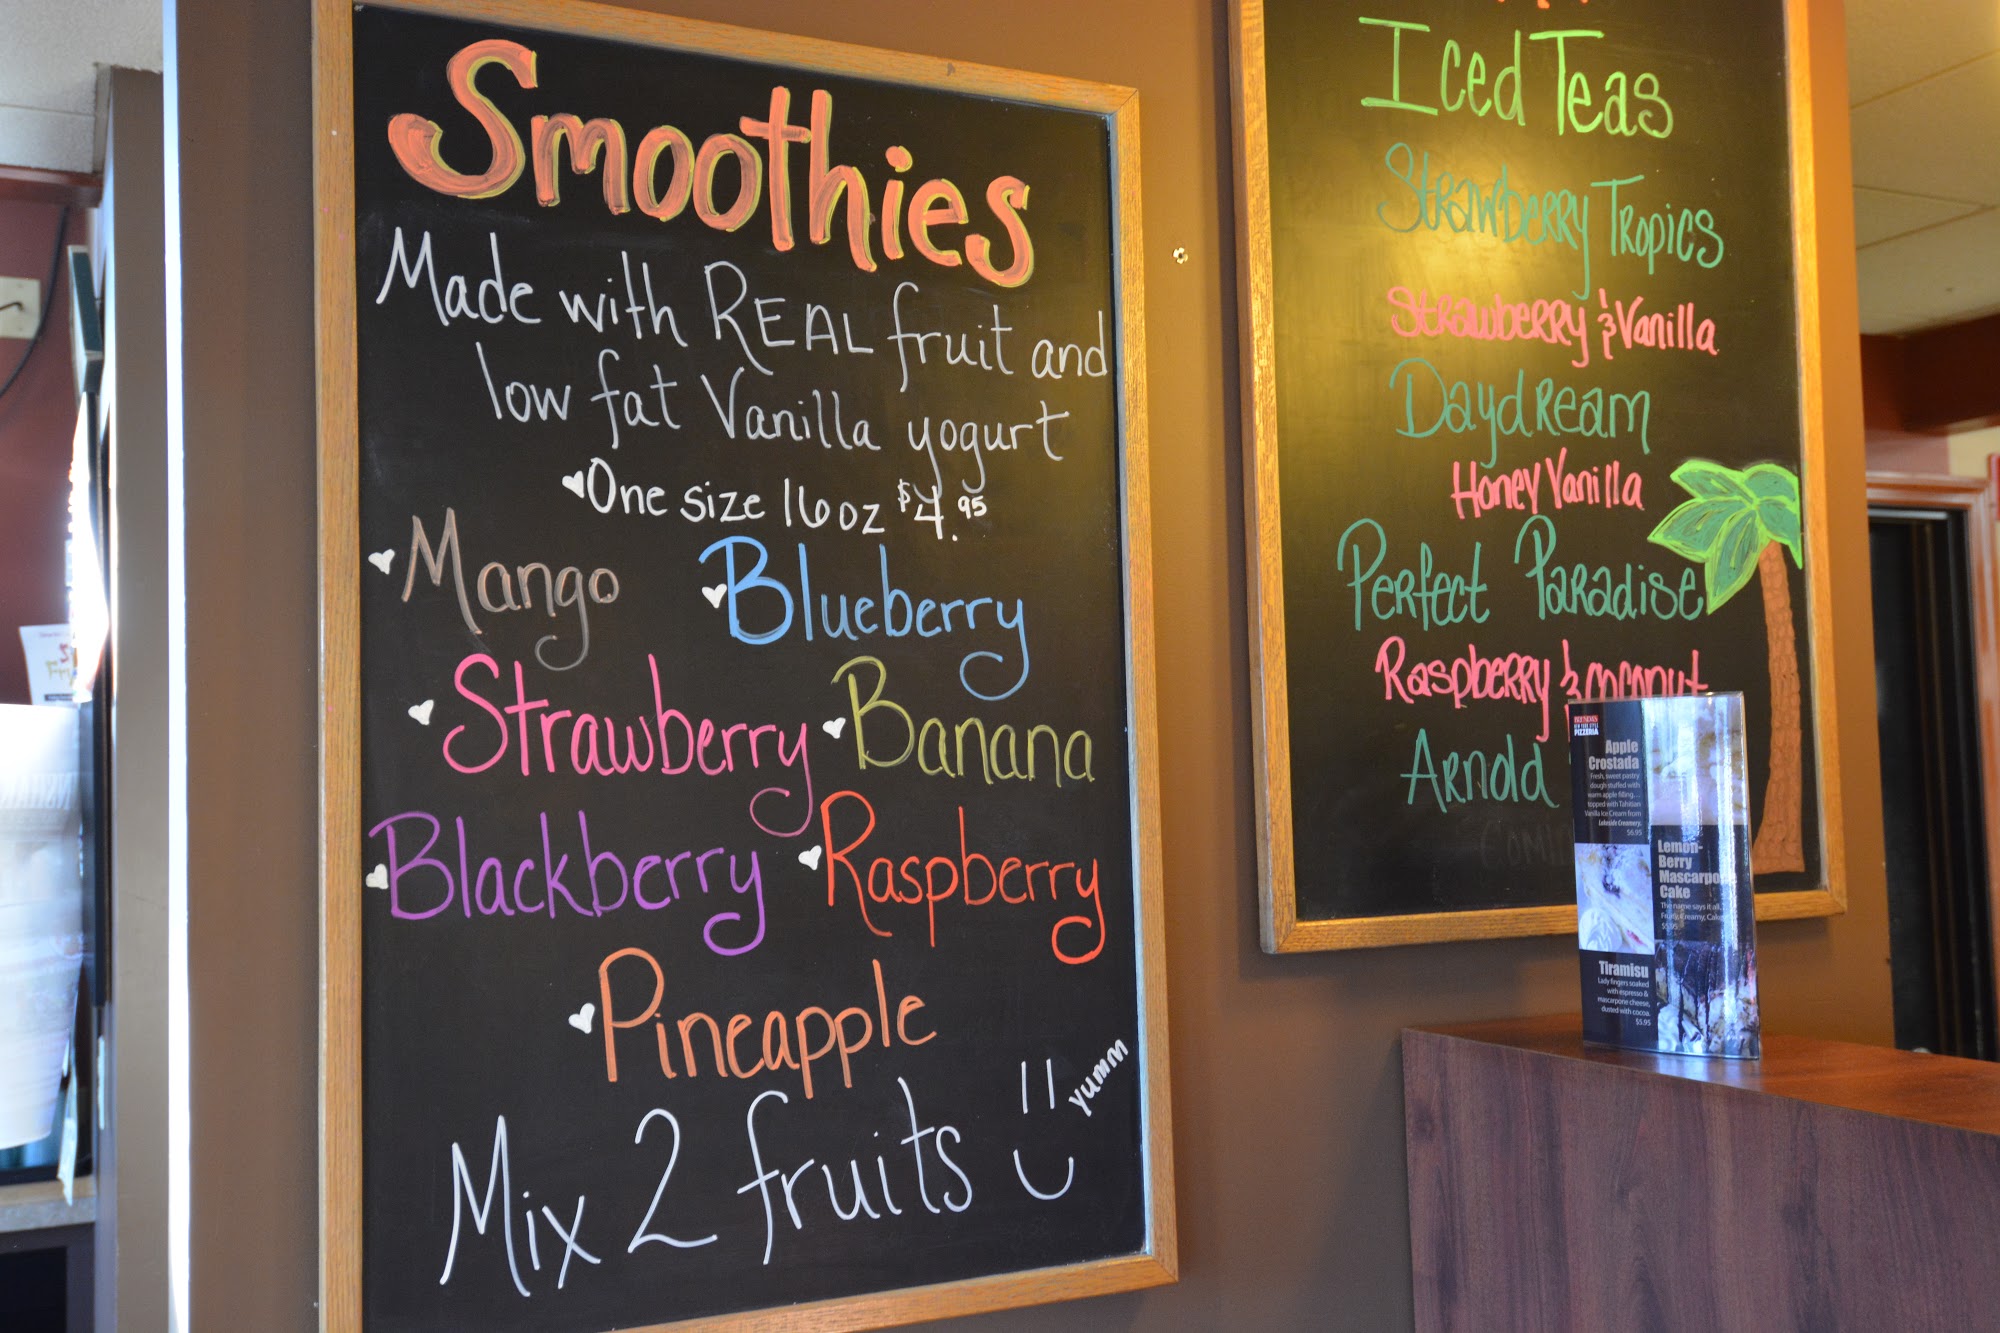 Smoothies
Made with REAL fruit and
low fat Vanilla yogurt
One size 16oz $4.95
Mango Blueberry
Strawberry Banana
Blackberry Raspberry
Pineapple
Mix 2 fruits
yumm
Iced Teas
Strawberry Tropics
Strawberry & Vanilla
Daydream
Honey Vanilla
Perfect Paradise
Raspberry & coconut
Arnold
Apple
Crostada
Fresh, sweet pastry
dough stuffed with
warm apple filling...
topped with Tahitian
Vanilla Ice Cream from
Lakeside Creamery.
$6.95
Lemon-
Berry
Mascarpone
Cake
The name says it all,
Fruity, Creamy, Cake
$5.95
Tiramisu
Lady fingers soaked
with espresso &
mascarpone cheese,
dusted with cocoa.
$5.95
NEW YORK STYLE
PIZZERIA